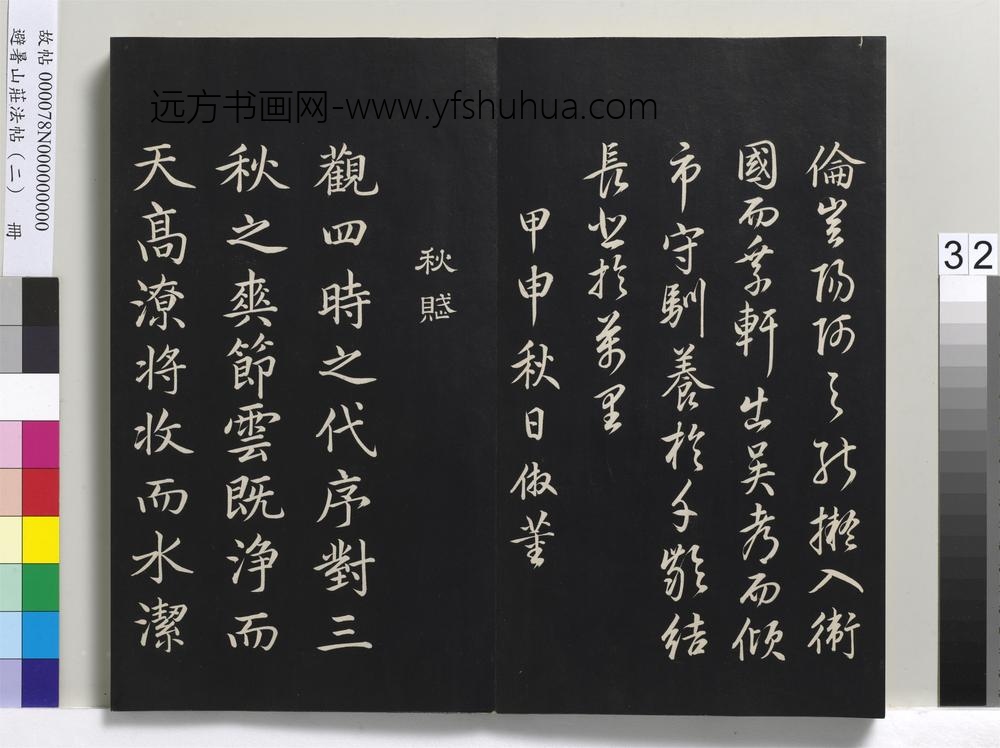 远方书画网-www.yfshuhua.com
倫豈陽阿之能擬入衛
國而乘軒出吳都而傾
市守馴養於千齡結
長悲於萬里
甲申秋日倣董
秋賦
觀四時之代序對三
秋之爽節雲既淨而
天髙潦將收而水潔
故帖 000078N000000000
避暑山莊法帖（二） 冊
32